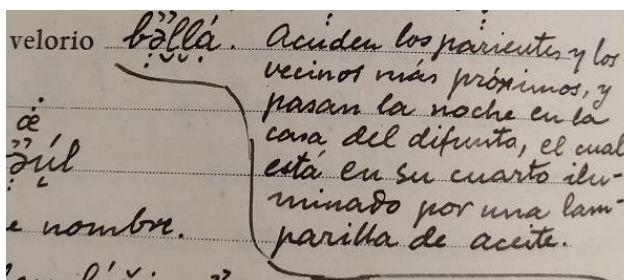 velorio bə̀llá. Acuden los parientes y los
vecinos más próximos, y
pasan la noche en la
casa del difunto, el cual
está en su cuarto ilu-
minado por una lam-
parilla de aceite.
nombre.